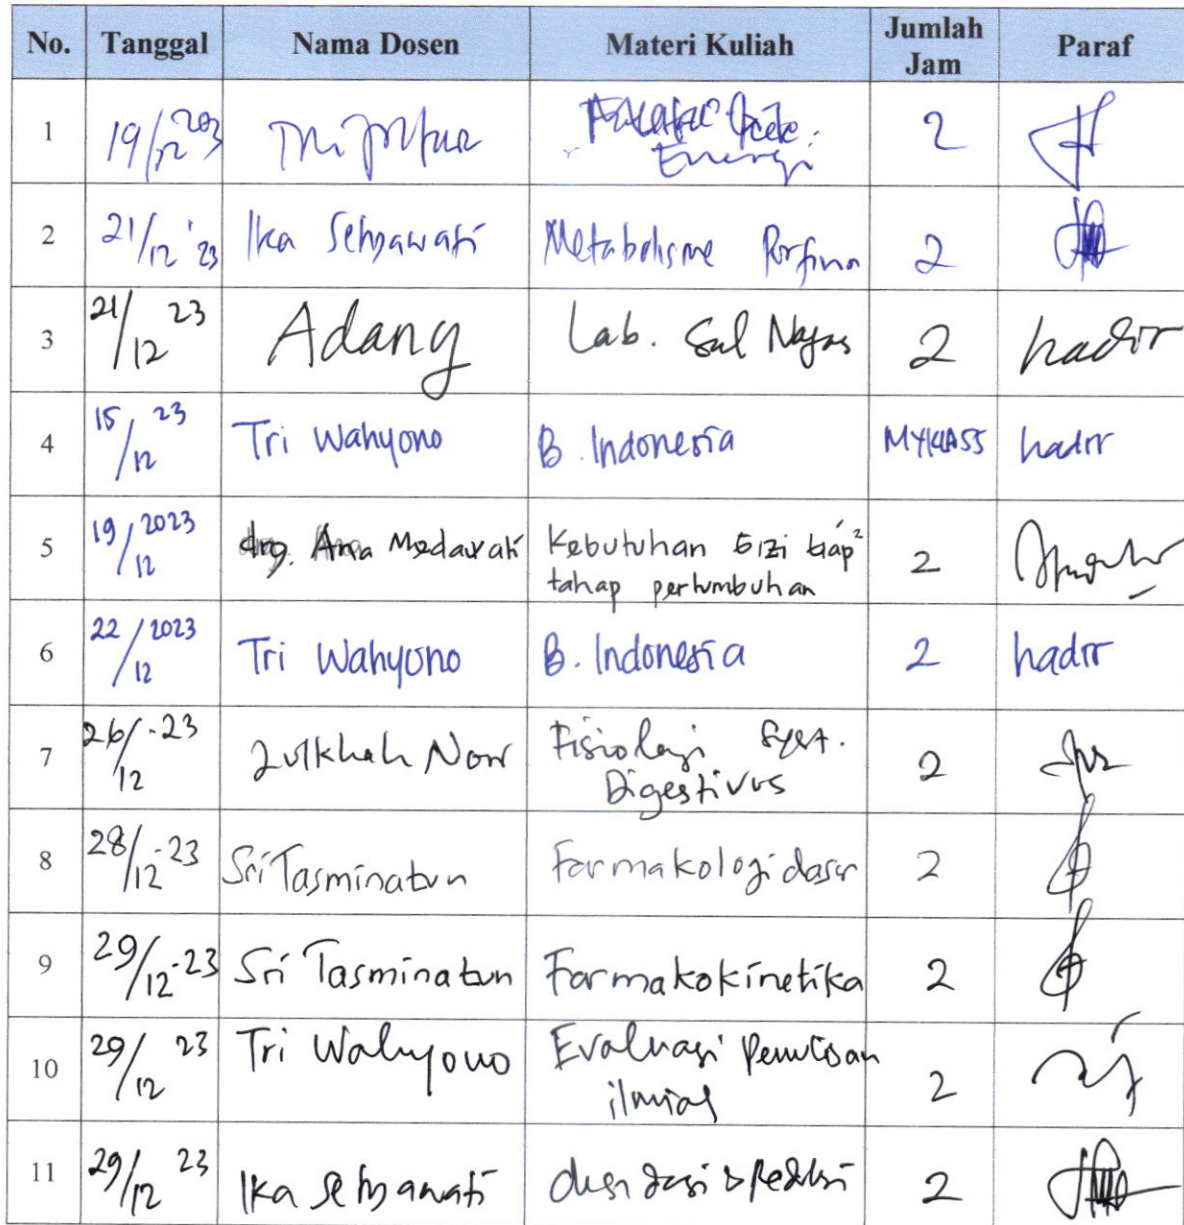 No. Tanggal Nama Dosen Materi Kuliah Jumlah Jam Paraf
1 19/12 2023 Tri 2
Energi
2 21/12 '23 Ika Setyawati Metabolisme Porfirin 2
3 21/12 23 Adang Lab. Sal Nafas 2 hadir
4 15/12 23 Tri Wahyono B. Indonesia MYKLASS hadir
5 19/12 2023 drg. Ana Medawati Kebutuhan Gizi tiap² 2
tahap pertumbuhan
6 22/12 2023 Tri Wahyono B. Indonesia 2 hadir
7 26/12 -23 Zulkhah Noor Fisiologi Syst. 2
Digestivus
8 28/12 -23 Sri Tasminatun Farmakologi dasar 2
9 29/12 -23 Sri Tasminatun Farmakokinetika 2
10 29/12 23 Tri Wahyono Evaluasi Penulisan 2
ilmiah
11 29/12 23 Ika Setyawati 2